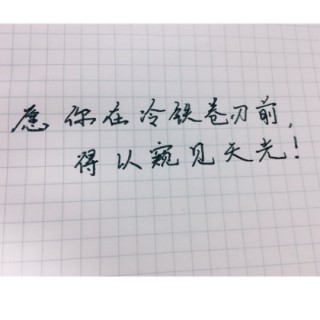 愿你在冷铁卷刃前，
得以窥见天光！